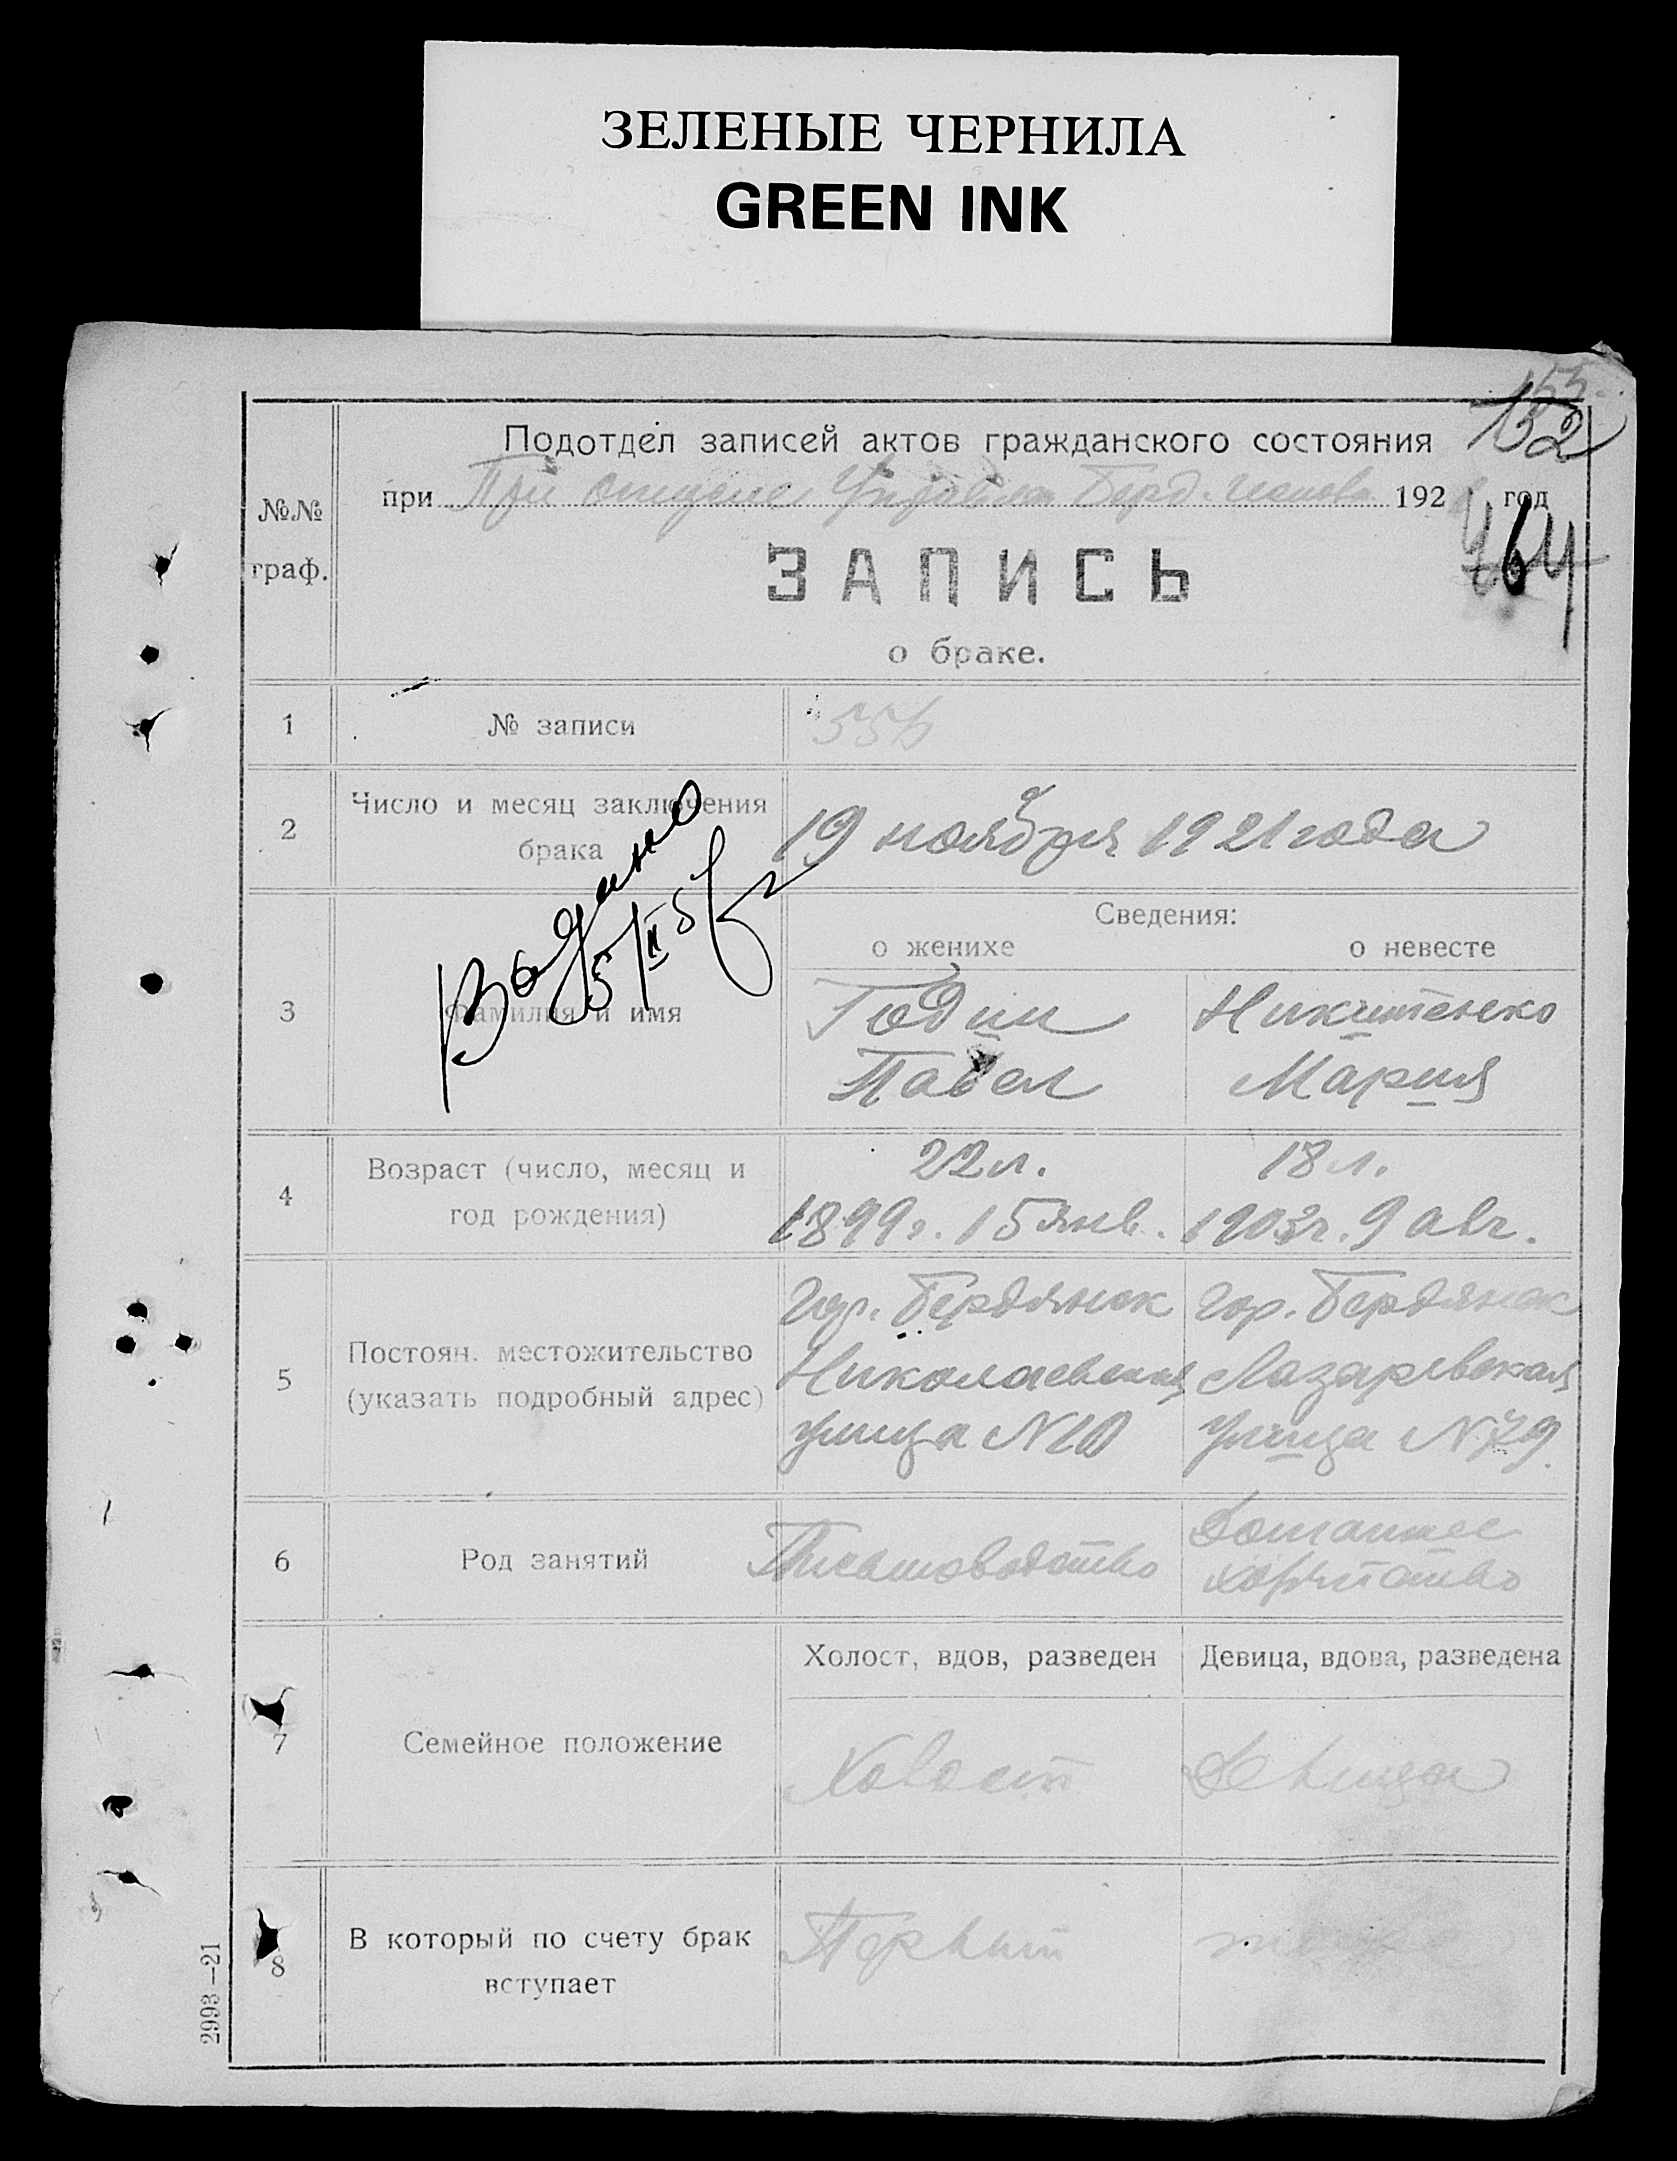 ЗЕЛЕНЫЕ ЧЕРНИЛА
GREEN INK
152
Подотдел записей актов гражданского состояния
при При Отделе Управлен Берд. 192 год
№№
граф.
ЗАПИСЬ
о браке.
1 № записи
2 Число и месяц заключения
брака
19 ноября 1921 года
Выдано
Сведения:
о женихе о невесте
3 Фамилия и имя
Годин Никитенко
Павел Мария
4 Возраст (число, месяц и
год рождения)
22 л. 18 л.
1899 г. 15 янв. 1903 г. 9 авг.
5 Постоян. местожительство
(указать подробный адрес)
Гор. Бердянск Гор. Бердянск
Николаевская Лазаревская
улица N 10 улица N 79.
6 Род занятий
Письмоводство Домашнее
хозяйство
Холост, вдов, разведен Девица, вдова, разведена
7 Семейное положение
Холост Девица
8 В который по счету брак
вступает
Первый
2993–21